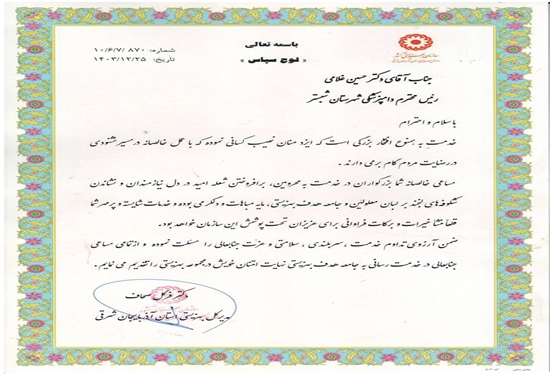 باسمه تعالی
« لوح سپاس »
شماره: ۱۰/۶/۷/ ۸۷۰
تاریخ: ۱۴۰۳/۱۲/۲۵
جناب آقای دکتر حسین غلامی
رئیس محترم دامپزشکی شهرستان شبستر
با سلام و احترام
خدمت به همنوع افتخار بزرگی است که ایزد منان نصیب کسانی نموده که با عمل خالصانه در مسیر خشنودی
و رضایت مردم گام برمی دارند.
مساعی خالصانه شما بزرگواران در خدمت به محرومین، برافروختن شعله امید در دل نیازمندان و نشاندن
شکوفه‌های لبخند بر لبان معلولین و جامعه هدف بهزیستی، مایه مباهات و دلگرمی بوده و خدمات شایسته و پرمهر شما
قطعا منشا خیرات و برکات فراوانی برای عزیزان تحت پوشش این سازمان خواهد بود.
ضمن آرزوی تداوم خدمت ، سربلندی ، سلامتی و عزت جنابعالی را مسئلت نموده و از تمامی مساعی
جنابعالی در خدمت رسانی به جامعه هدف بهزیستی نهایت امتنان خویش در مجموعه بهزیستی را تقدیم می نمایم.
دکتر فرگل صحاف
مدیرکل بهزیستی استان آذربایجان شرقی